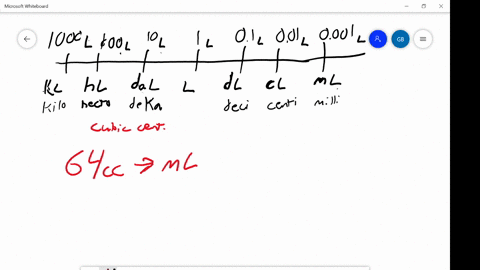 Microsoft Whiteboard
GB
1000L 100L 10L 1L 0.1L 0.01L 0.001L
KL hL daL L dL cL mL
Kilo hecto deka deci centi milli
cubic cent.
64cc → mL